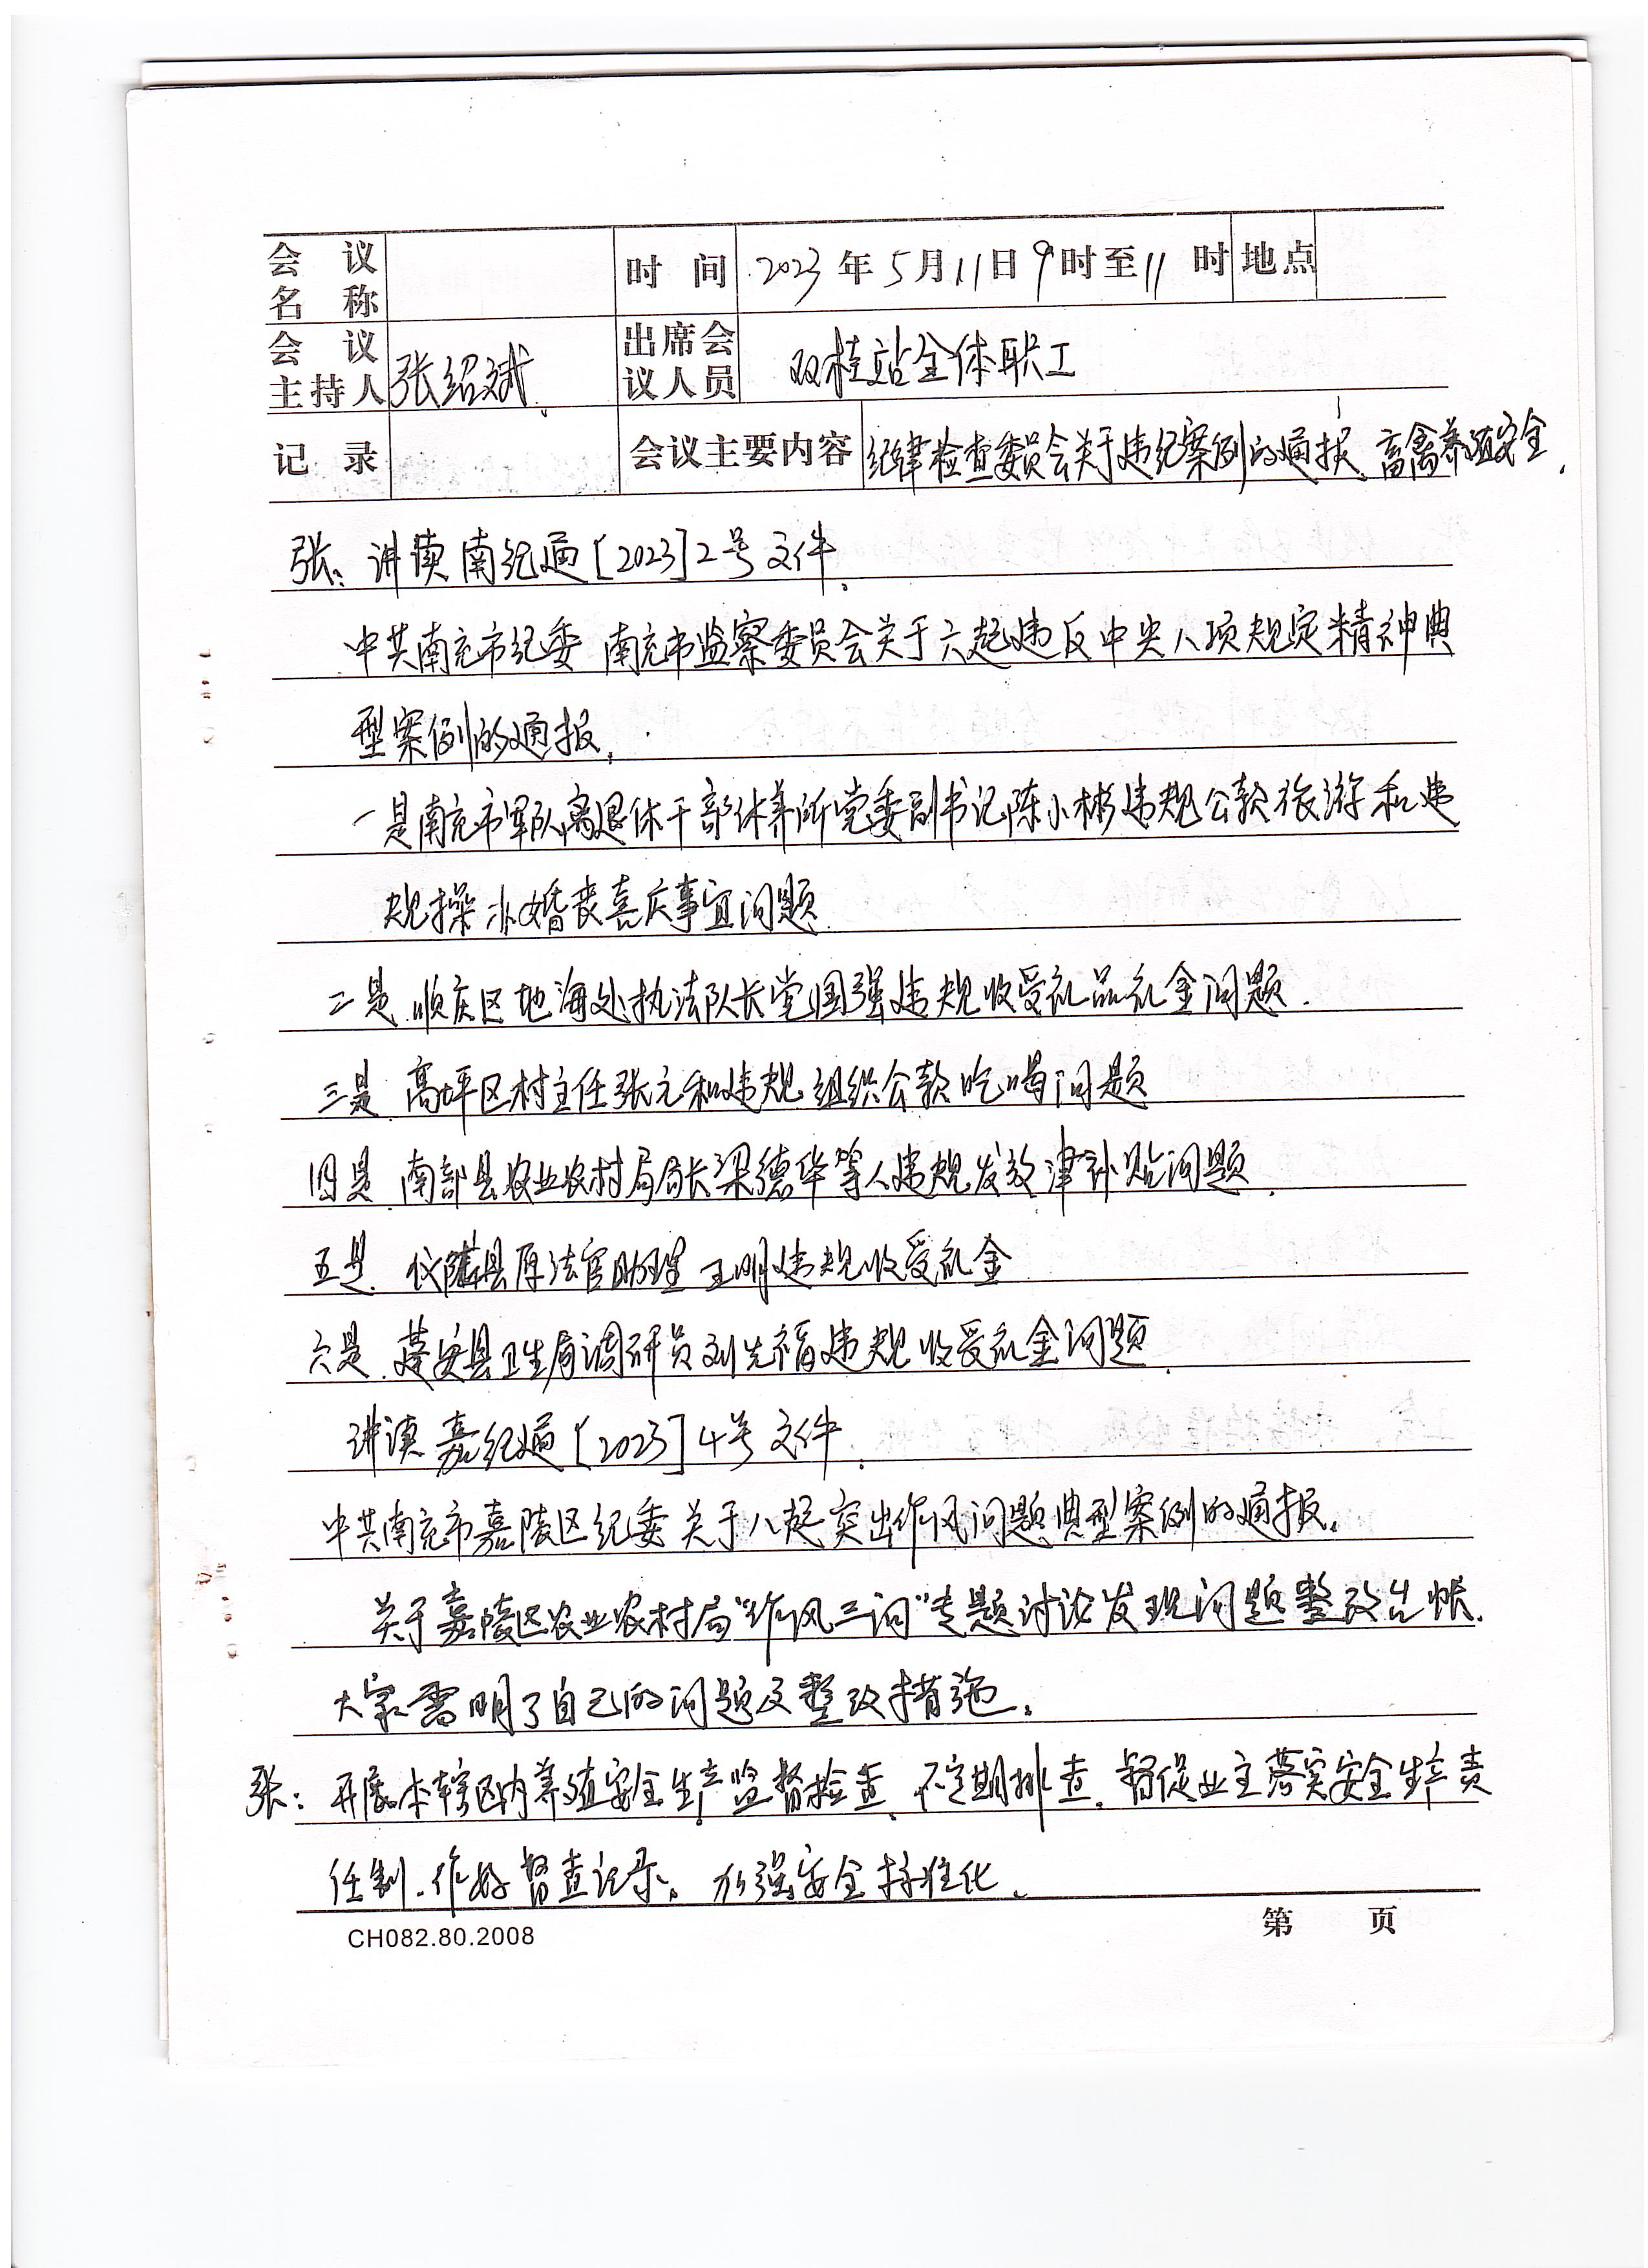 会议名称 时间 2023年5月11日9时至11时 地点
会议主持人 张绍斌 出席会议人员 双桂站全体职工
记录 会议主要内容 纪律检查委员会关于违纪案例的通报、畜禽养殖安全.
张：讲读南纪通[2023]2号文件。
中共南充市纪委 南充市监察委员会关于六起违反中央八项规定精神典
型案例的通报。
一是南充市军队离退休干部休养所党委副书记陈小彬违规公款旅游和违
规操办婚丧喜庆事宜问题.
二是.顺庆区地海处执法队长党国强违规收受礼品礼金问题.
三是 高坪区村主任张元和违规组织公款吃喝问题
四是.南部县农业农村局局长梁德华等人违规发放津补贴问题.
五是.仪陇县原法官助理王明违规收受礼金
六是.蓬安县卫生局调研员刘先福违规收受礼金问题.
讲读嘉纪通[2023]4号文件.
中共南充市嘉陵区纪委关于八起突出作风问题典型案例的通报。
关于嘉陵区农业农村局“作风三问”专题讨论发现问题整改台帐.
大家需明了自己的问题及整改措施。
张：开展本辖区内养殖安全生产监督检查.不定期排查.督促业主落实安全生产责
任制.作好督查记录。加强安全标准化.
CH082.80.2008 第 页